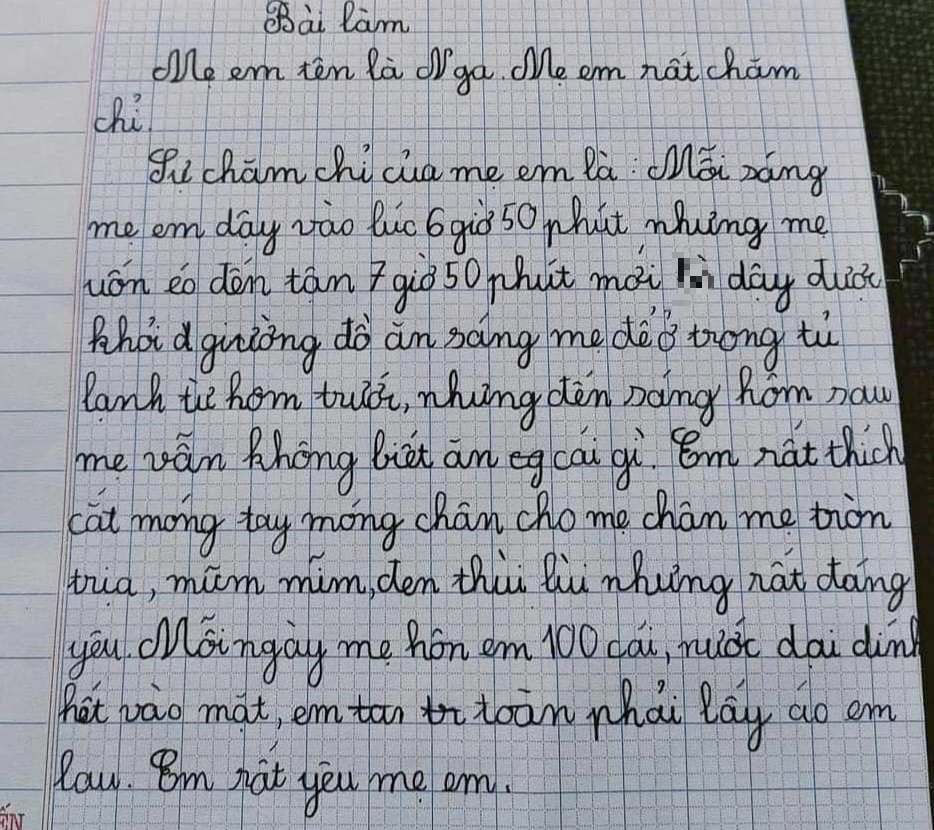 Bài làm
Mẹ em tên là Nga. Mẹ em rất chăm
chỉ.
Sự chăm chỉ của mẹ em là: Mỗi sáng
mẹ em dậy vào lúc 6 giờ 50 phút nhưng mẹ
uốn éo đến tận 7 giờ 50 phút mới dậy được
khỏi giường đồ ăn sáng mẹ để ở trong tủ
lạnh từ hôm trước, nhưng đến sáng hôm sau
mẹ vẫn không biết ăn cái gì. Em rất thích
cắt móng tay móng chân cho mẹ chân mẹ tròn
trịa, mũm mĩm, đen thùi lùi nhưng rất đáng
yêu. Mỗi ngày mẹ hôn em 100 cái, nước dại dính
hết vào mặt, em toàn phải lấy áo em
lau. Em rất yêu mẹ em.
ẾN